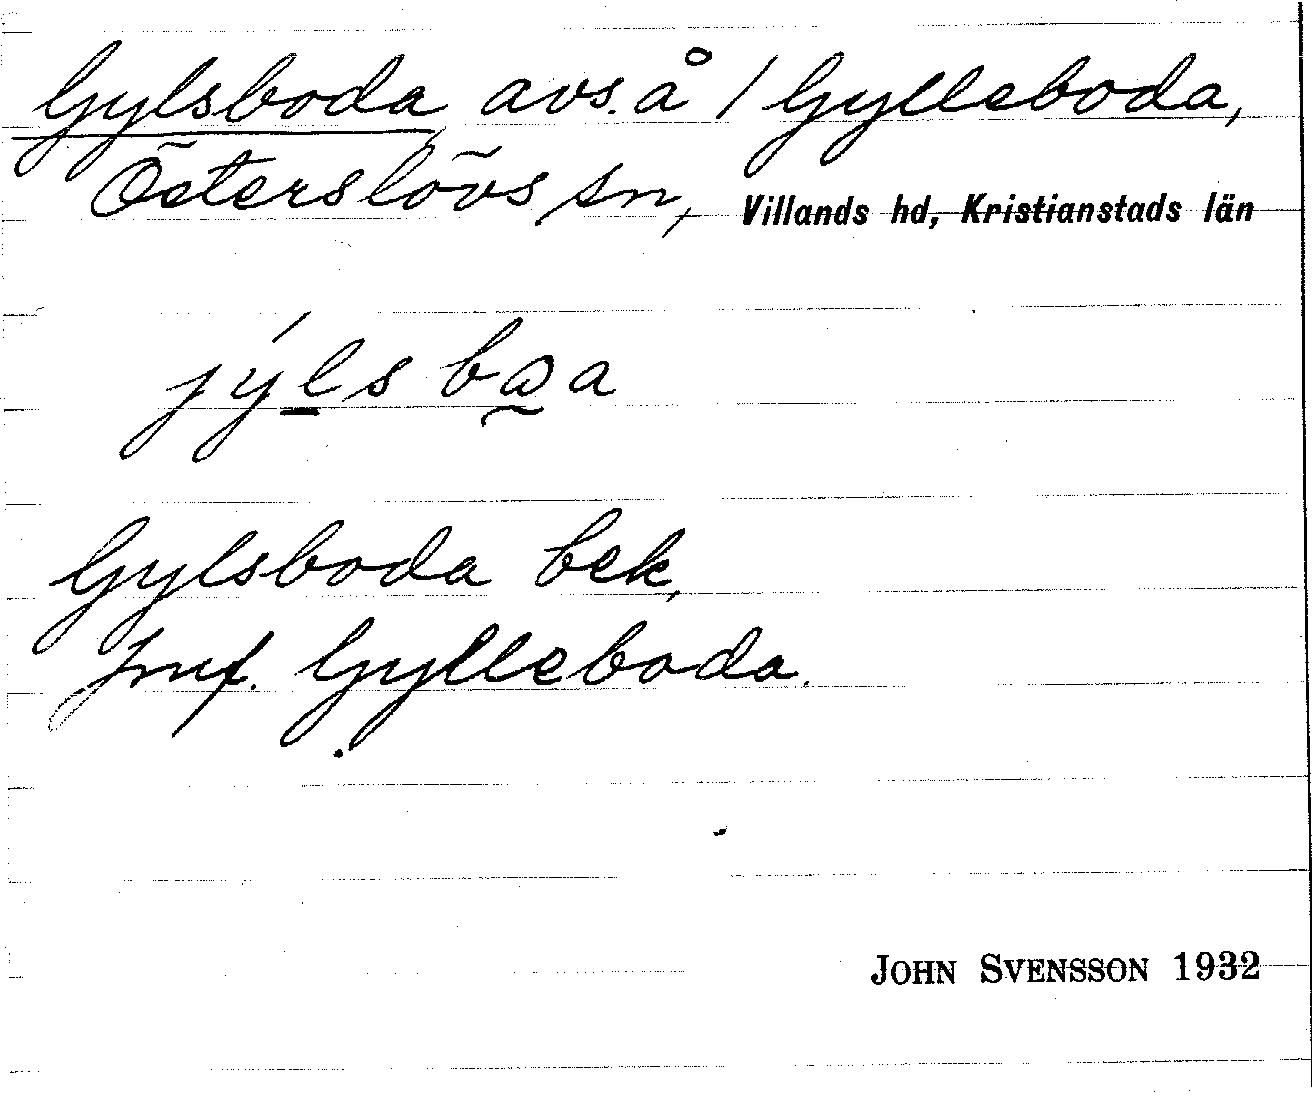 Gylsboda avs. å / Gylleboda,
Österslövs sn, Villands hd, Kristianstads län
jýl̲s bɷ̰a
Gylsboda bek,
Jmf. Gylleboda.
JOHN SVENSSON 1932